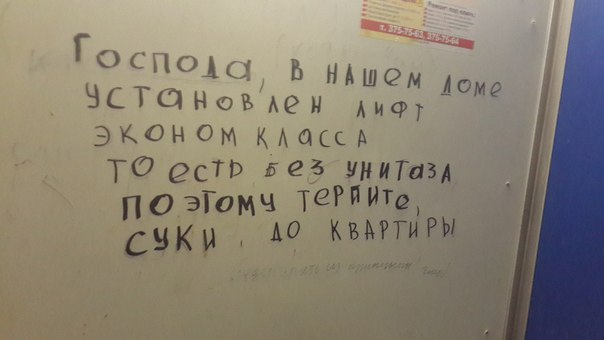 т. 375-75-63, 375-75-64
Господа, в нашем доме
установлен лифт
эконом класса
то есть без унитаза
поэтому терпите,
суки, до квартиры